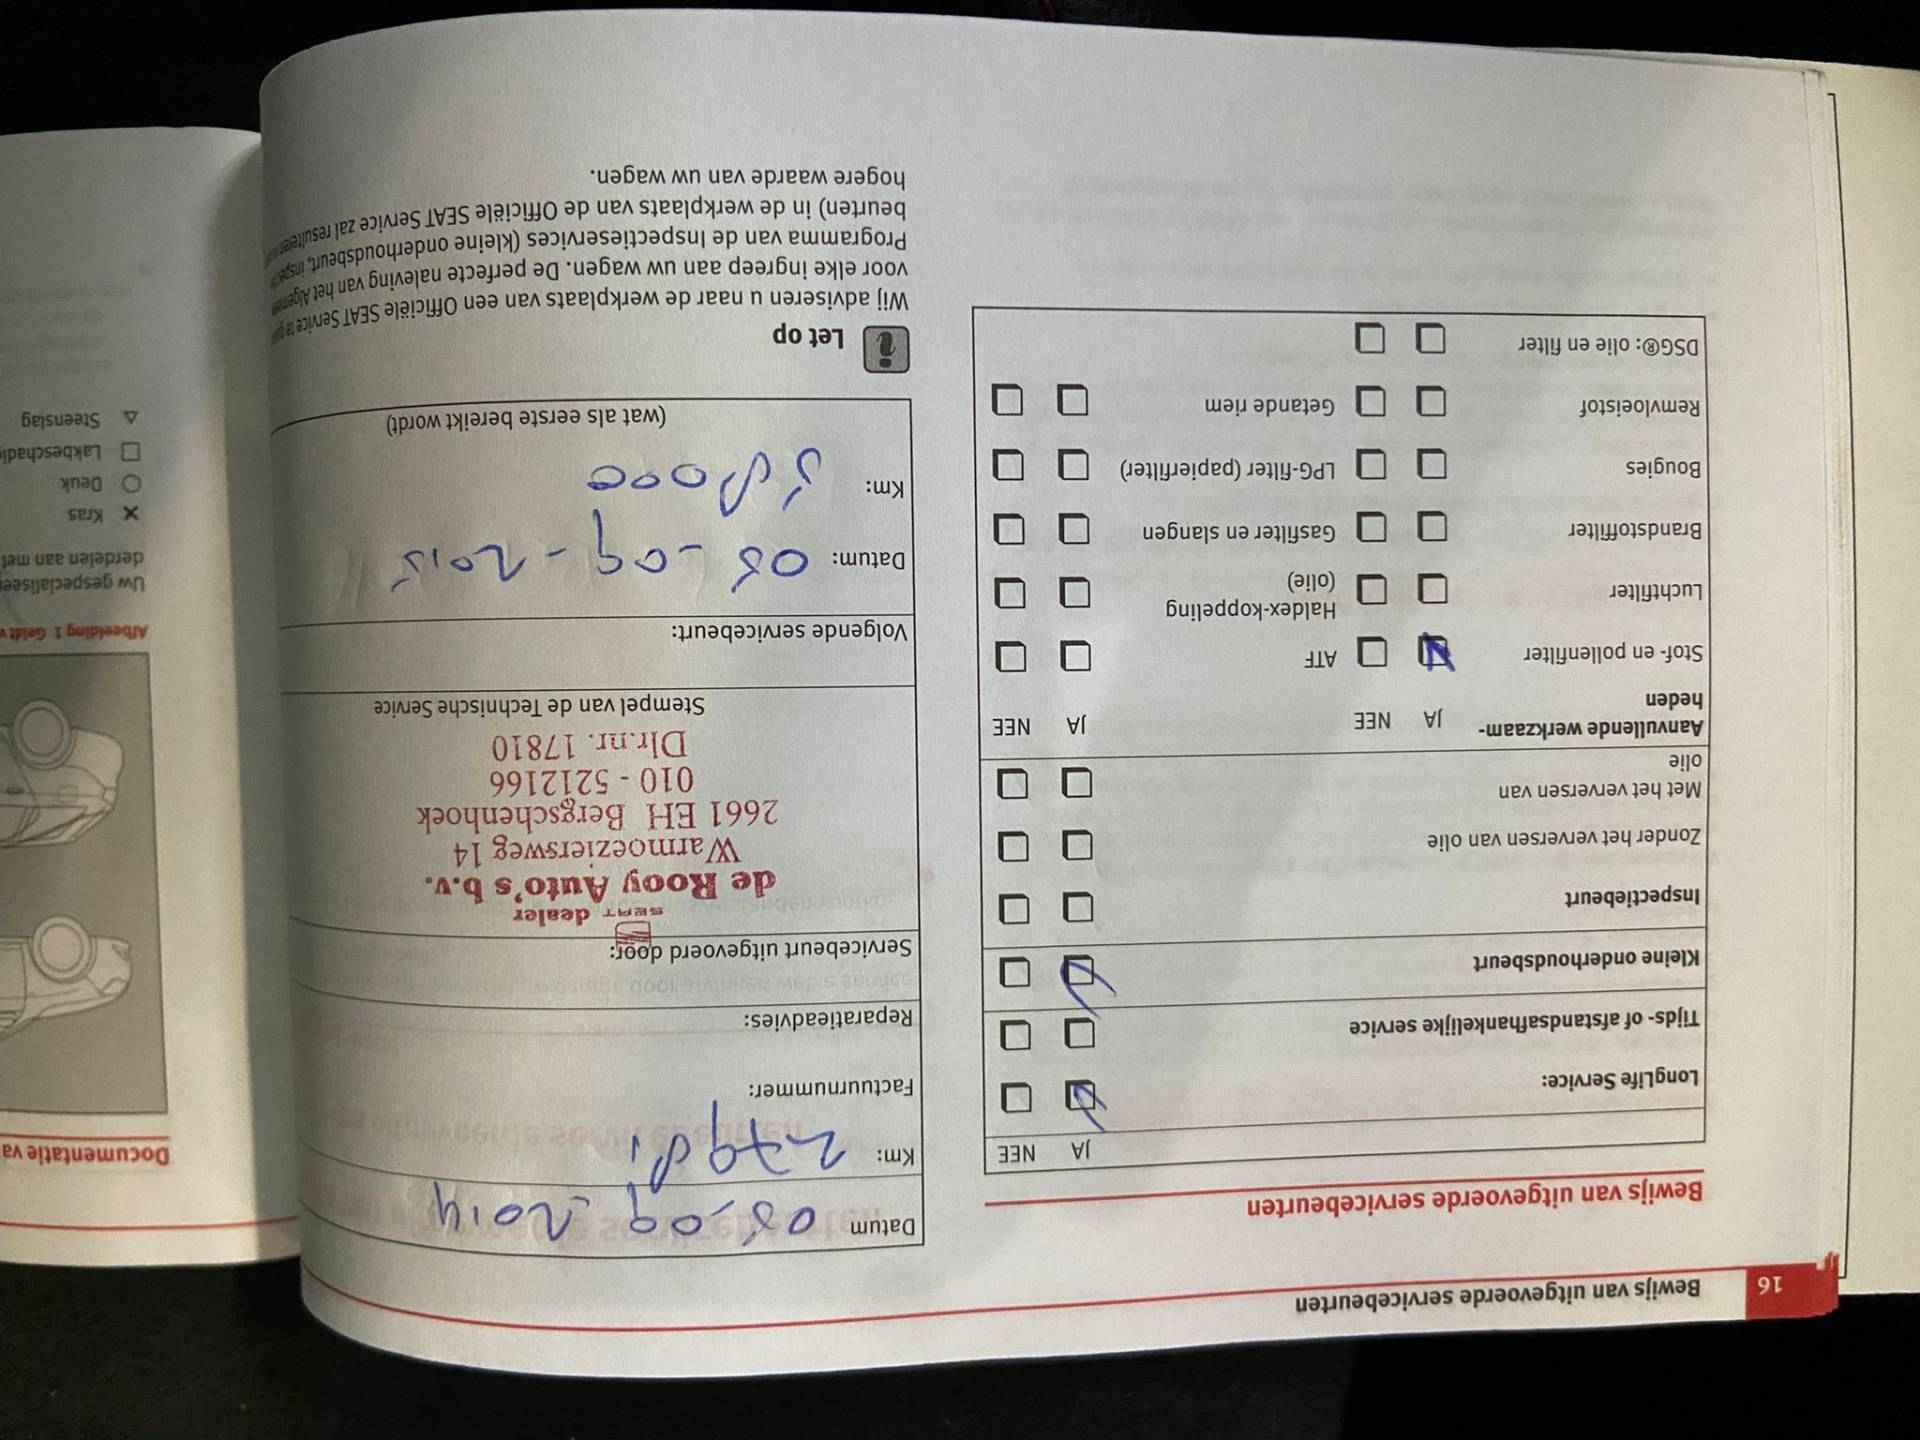 16
Bewijs van uitgevoerde servicebeurten
Bewijs van uitgevoerde servicebeurten
JA NEE
LongLife Service:
Tijds- of afstandsafhankelijke service
Kleine onderhoudsbeurt
Inspectiebeurt
Zonder het verversen van olie
Met het verversen van
olie
Aanvullende werkzaam-
heden
JA NEE JA NEE
Stof- en pollenfilter ATF
Luchtfilter Haldex-koppeling
(olie)
Brandstoffilter Gasfilter en slangen
Bougies LPG-filter (papierfilter)
Remvloeistof Getande riem
DSG®: olie en filter
Datum 05-09-2014
Km: 27981
Factuurnummer:
Reparatieadvies:
Servicebeurt uitgevoerd door:
SEAT dealer
de Rooy Auto's b.v.
Warmoeziersweg 14
2661 EH Bergschenhoek
010 - 5212166
Dlr.nr. 17810
Stempel van de Technische Service
Volgende servicebeurt:
Datum: 05-09-2015
Km: 58000
(wat als eerste bereikt wordt)
Let op
Wij adviseren u naar de werkplaats van een Officiële SEAT Service te
voor elke ingreep aan uw wagen. De perfecte naleving van het
Programma van de Inspectieservices (kleine onderhoudsbeurt,
beurten) in de werkplaats van de Officiële SEAT Service zal
hogere waarde van uw wagen.
Documentatie va
Afbeelding 1 Geldt v
Uw gespecialisee
derdelen aan met
Kras
Deuk
Lakbeschadi
Steenslag